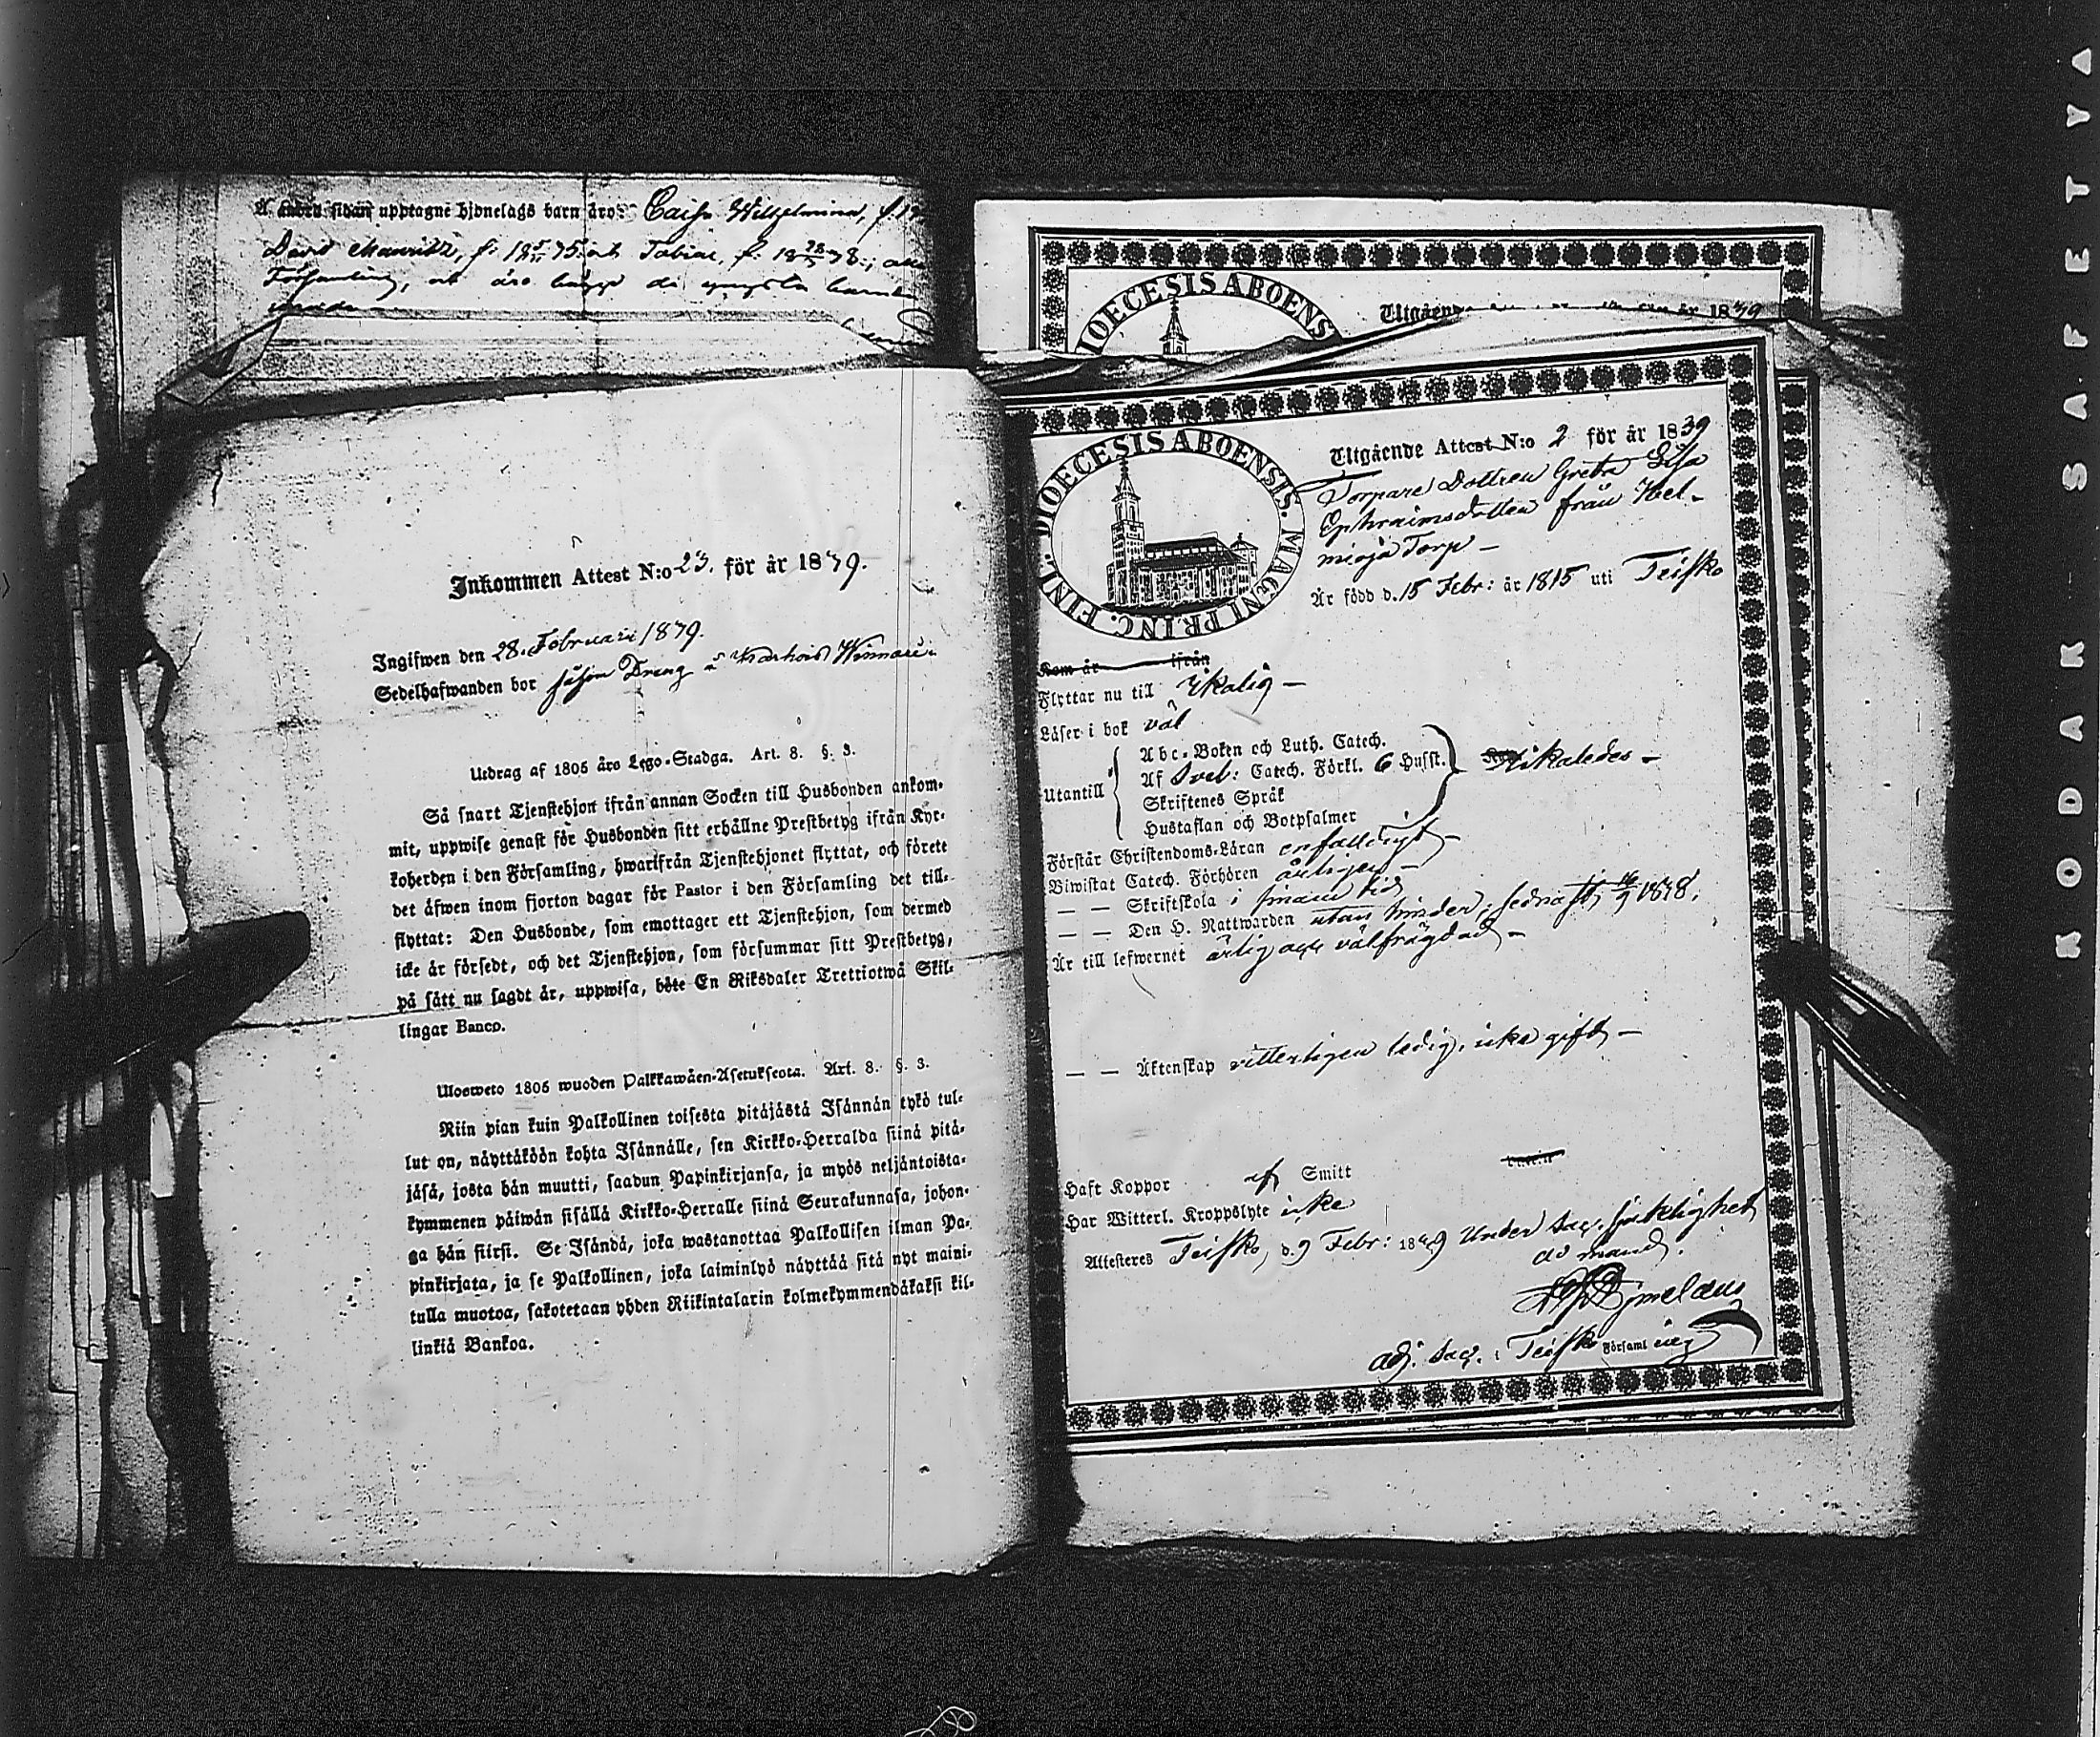 å andra sidan upptagne hjonelags barn äro: Caisa Wilhelmina, f. 18
David Mauritz, f. 18 75. och Tobias, f. 18 28 78.;
Församling, och äro de yngsta
Inkommen Attest N:o 23. för år 1839.
Ingifwen den 28. Februari 1839.
Sedelhafwanden bor såsom Dreng å
Utdrag af 1805 års Lego-Stadga. Art. 8. §. 3.
Så snart Tjenstehjon ifrån annan Socken till Husbonden ankom-
mit, uppwise genast för Husbonden sitt erhållne Prestbetyg ifrån Kyr-
koherden i den Församling, hwarifrån Tjenstehjonet flyttat, och förete
det äfwen inom fjorton dagar för Pastor i den Församling det till-
flyttat: Den Husbonde, som emottager ett Tjenstehjon, som dermed
icke är försedt, och det Tjenstehjon, som försummar sitt Prestbetyg,
på sätt nu sagdt är, uppwisa, böte En Riksdaler Trettiotwå Skil-
lingar Banco.
Ulosweto 1805 wuoden Palkkawäen-Asetuksesta. Art. 8. §. 3.
Niin pian kuin Palkollinen toisesta pitäjästä Isännän tykö tul-
lut on, näyttäköön kohta Isännälle, sen Kirkko-Herralda siinä pitä-
jäsä, josta hän muutti, saadun Papinkirjansa, ja myös neljäntoista-
kymmenen päiwän sisällä Kirkko-Herralle siinä Seurakunnasa, johon-
ga hän siirsi. Se Isändä, joka wastanottaa Palkollisen ilman Pa-
pinkirjata, ja se Palkollinen, joka laiminlyö näyttää sitä nyt maini-
tulla muotoa, sakotetaan yhden Riikintalarin kolmekymmendäkaksi kil-
linkiä Bankoa.
DIOECESIS ABOENS
Utgående år 1839
DIOECESIS ABOENSIS. MAGNI PRINC. FINL.
Utgående Attest N:o 2 för år 1839
Torpare Dottren Greta Lisa
Ephraimsdotter från Hel-
mioja Torp –
Är född d. 15 Febr: år 1815 uti Teisko
Kom år ifrån
Flyttar nu till Ikalis –
Läser i bok väl
Utantill
Abc-Boken och Luth. Catech.
Af Sveb: Catech. Förkl. 6 Hufst.
Skriftenes Språk
Hustaflan och Botpsalmer
likaledes –
Förstår Christendoms-Läran enfaldigt –
Biwistat Catech. Förhören årligen –
— — Skriftskola i sinom tid
— — Den H. Nattwarden utan hinder, sednast 1838.
Är till lefwernet ärlig och välfrägdad –
— — Äktenskap vitterligen ledig, icke gift –
Haft Koppor af Smitt
Har Witterl. Kroppslyte icke
Attesteres Teisko, d. 9 Febr: 1839 Under sacr. sjuklighet
ad mand.
adj. sacr. i Teisko Församling
KODAK SAFETY A